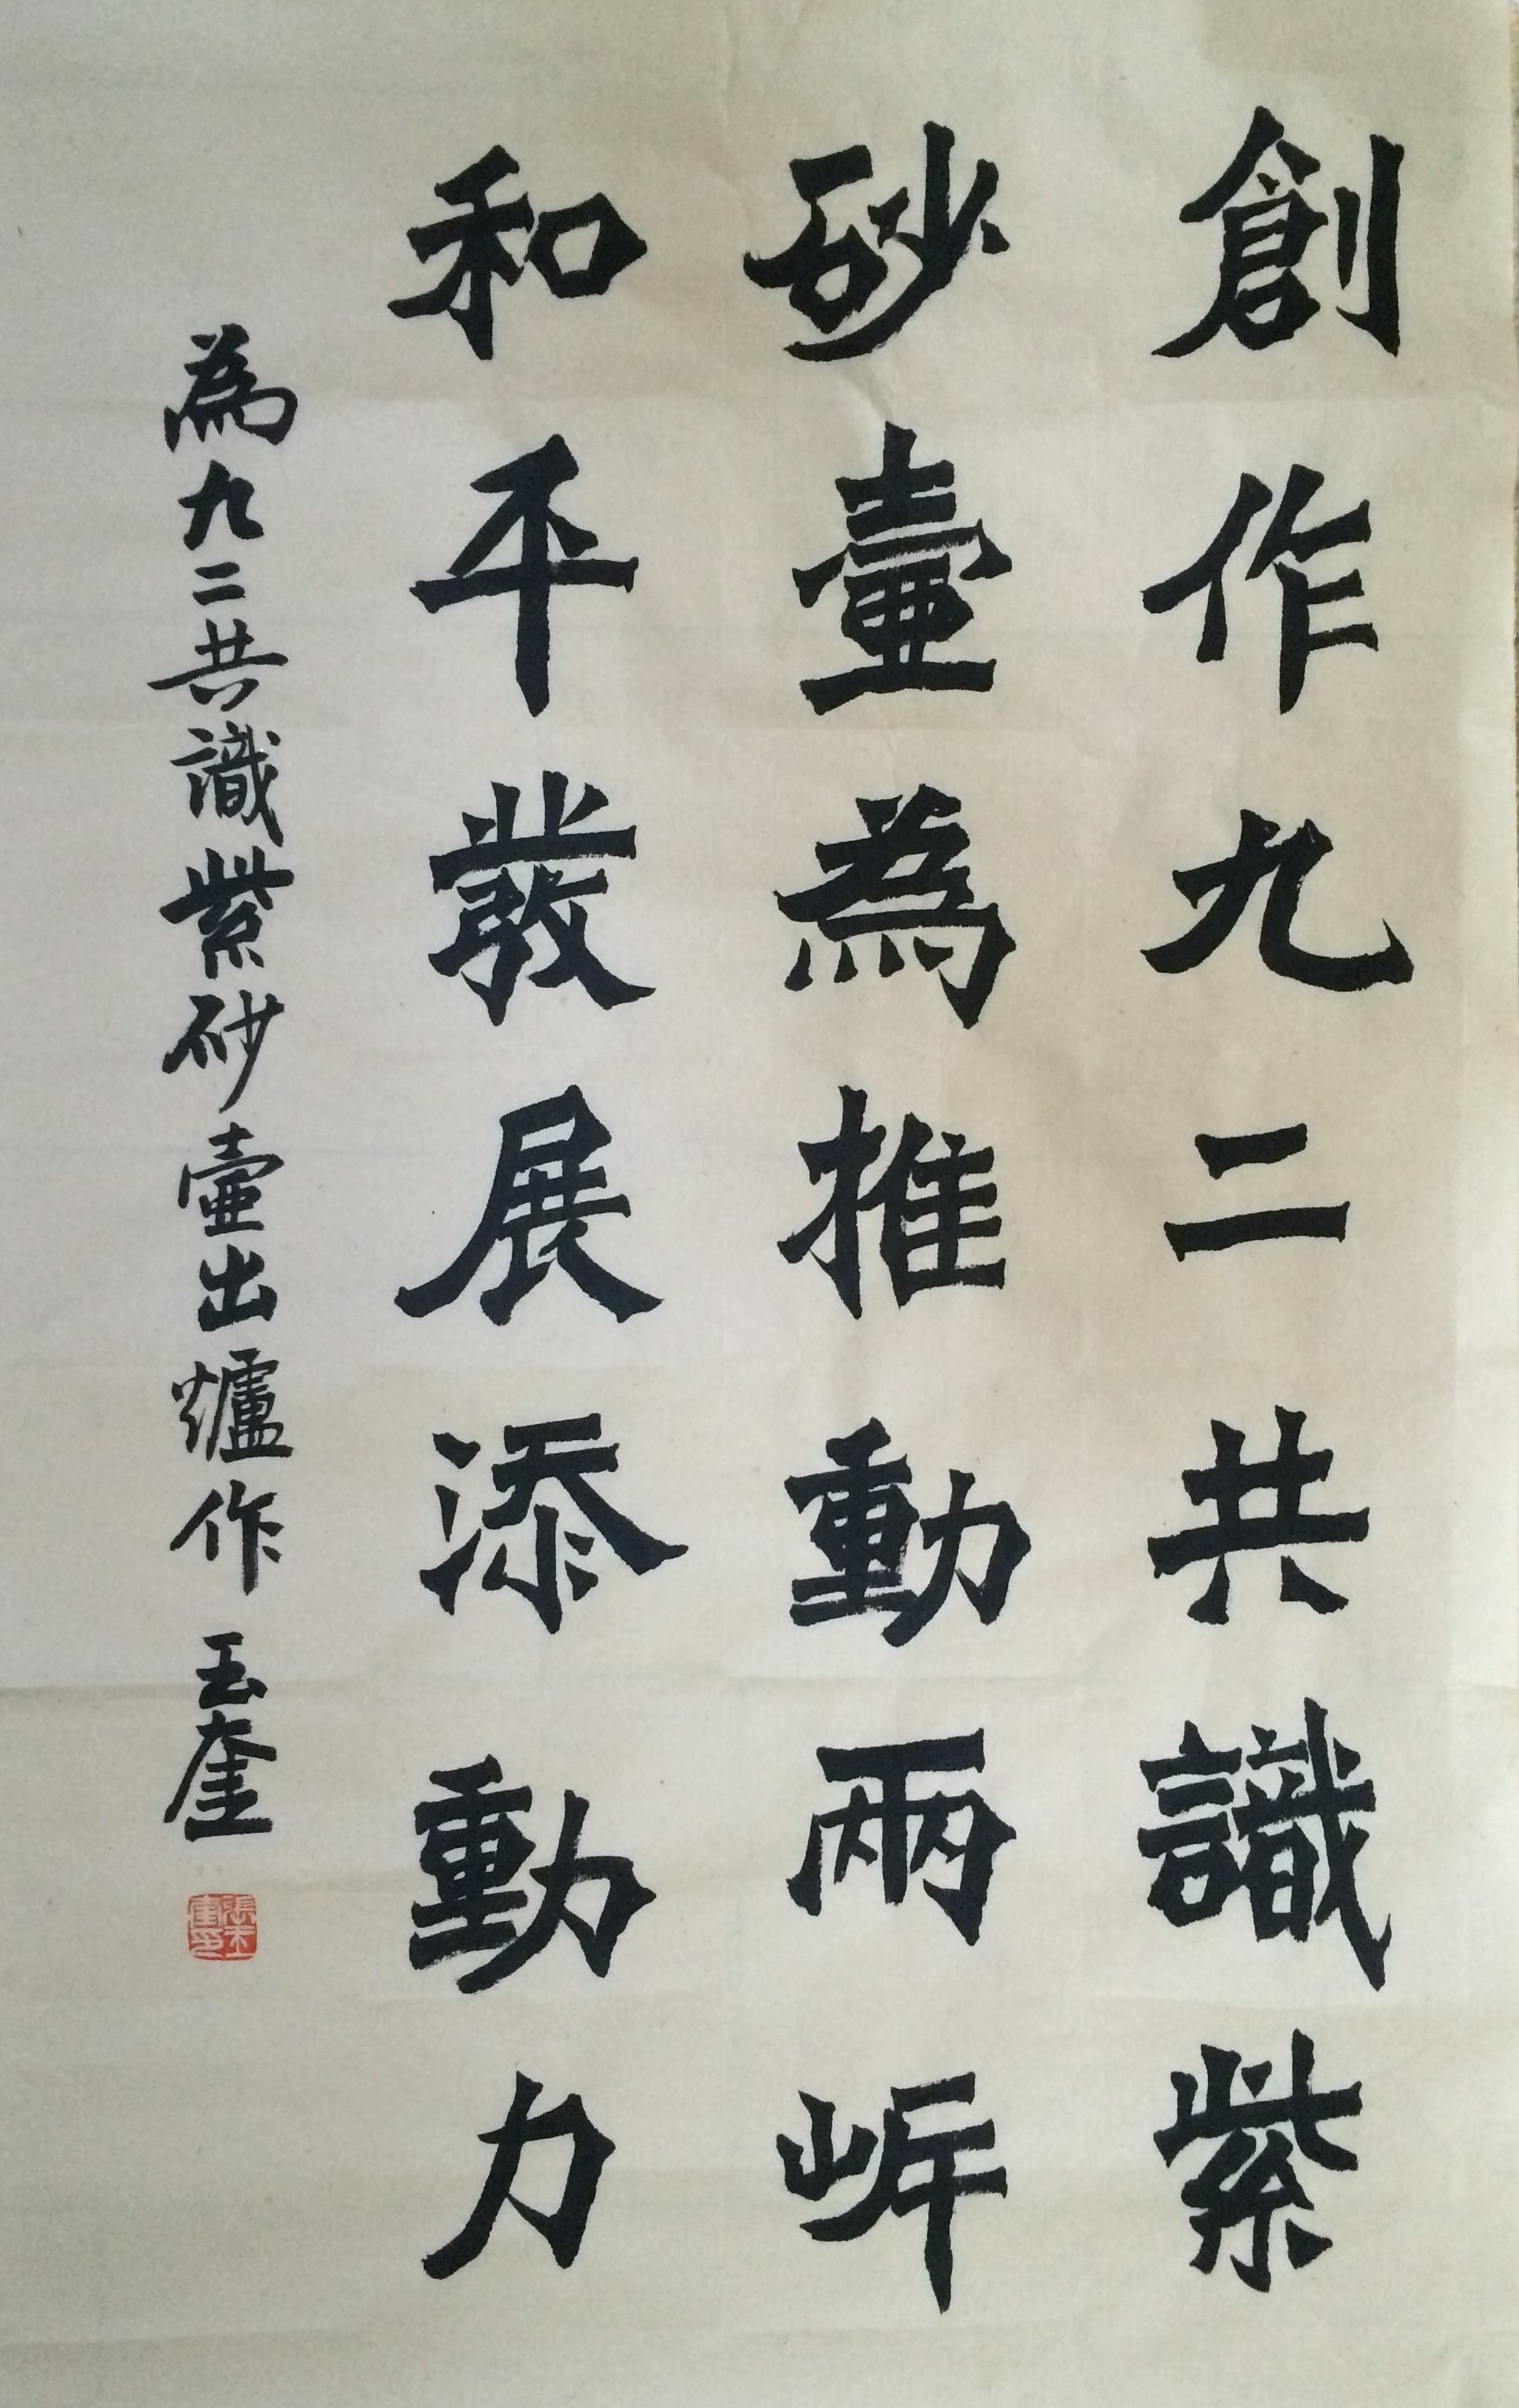 創作九二共識紫
砂壺為推動兩岸
和平發展添動力
為九二共識紫砂壺出爐作 玉奎
張玉奎印